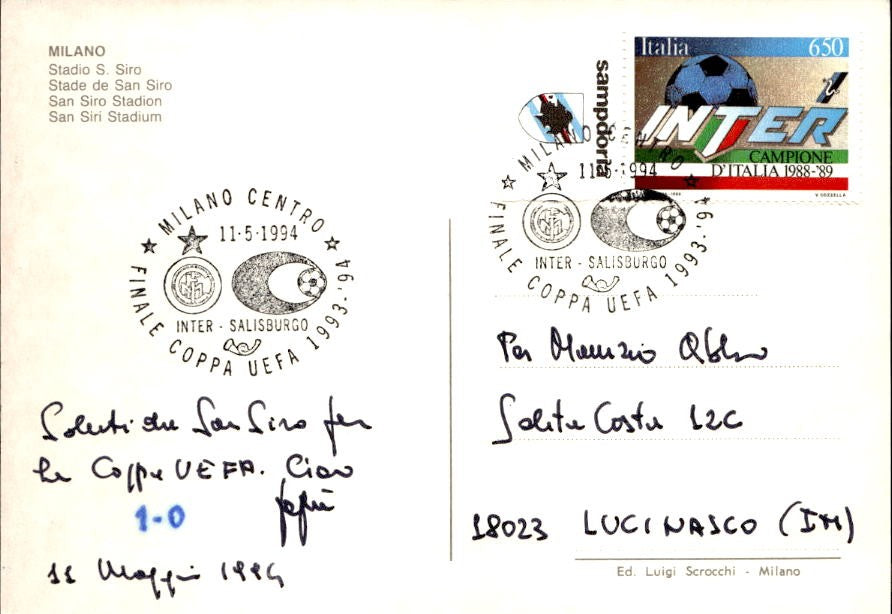 MILANO
Stadio S. Siro
Stade de San Siro
San Siro Stadion
San Siri Stadium
Italia 650
INTER
CAMPIONE
D'ITALIA 1988-'89
V. COZZELLA
sampdoria
MILANO CENTRO
11-5-1994
INTER - SALISBURGO
FINALE COPPA UEFA 1993-'94
MILANO CENTRO
11-5-1994
INTER - SALISBURGO
FINALE COPPA UEFA 1993-'94
Saluti da San Siro per
la Coppa UEFA. Ciao
1-0
11 Maggio 1994
Per Maurizio
Salita Costa 12C
18023 LUCINASCO (IM)
Ed. Luigi Scrocchi - Milano